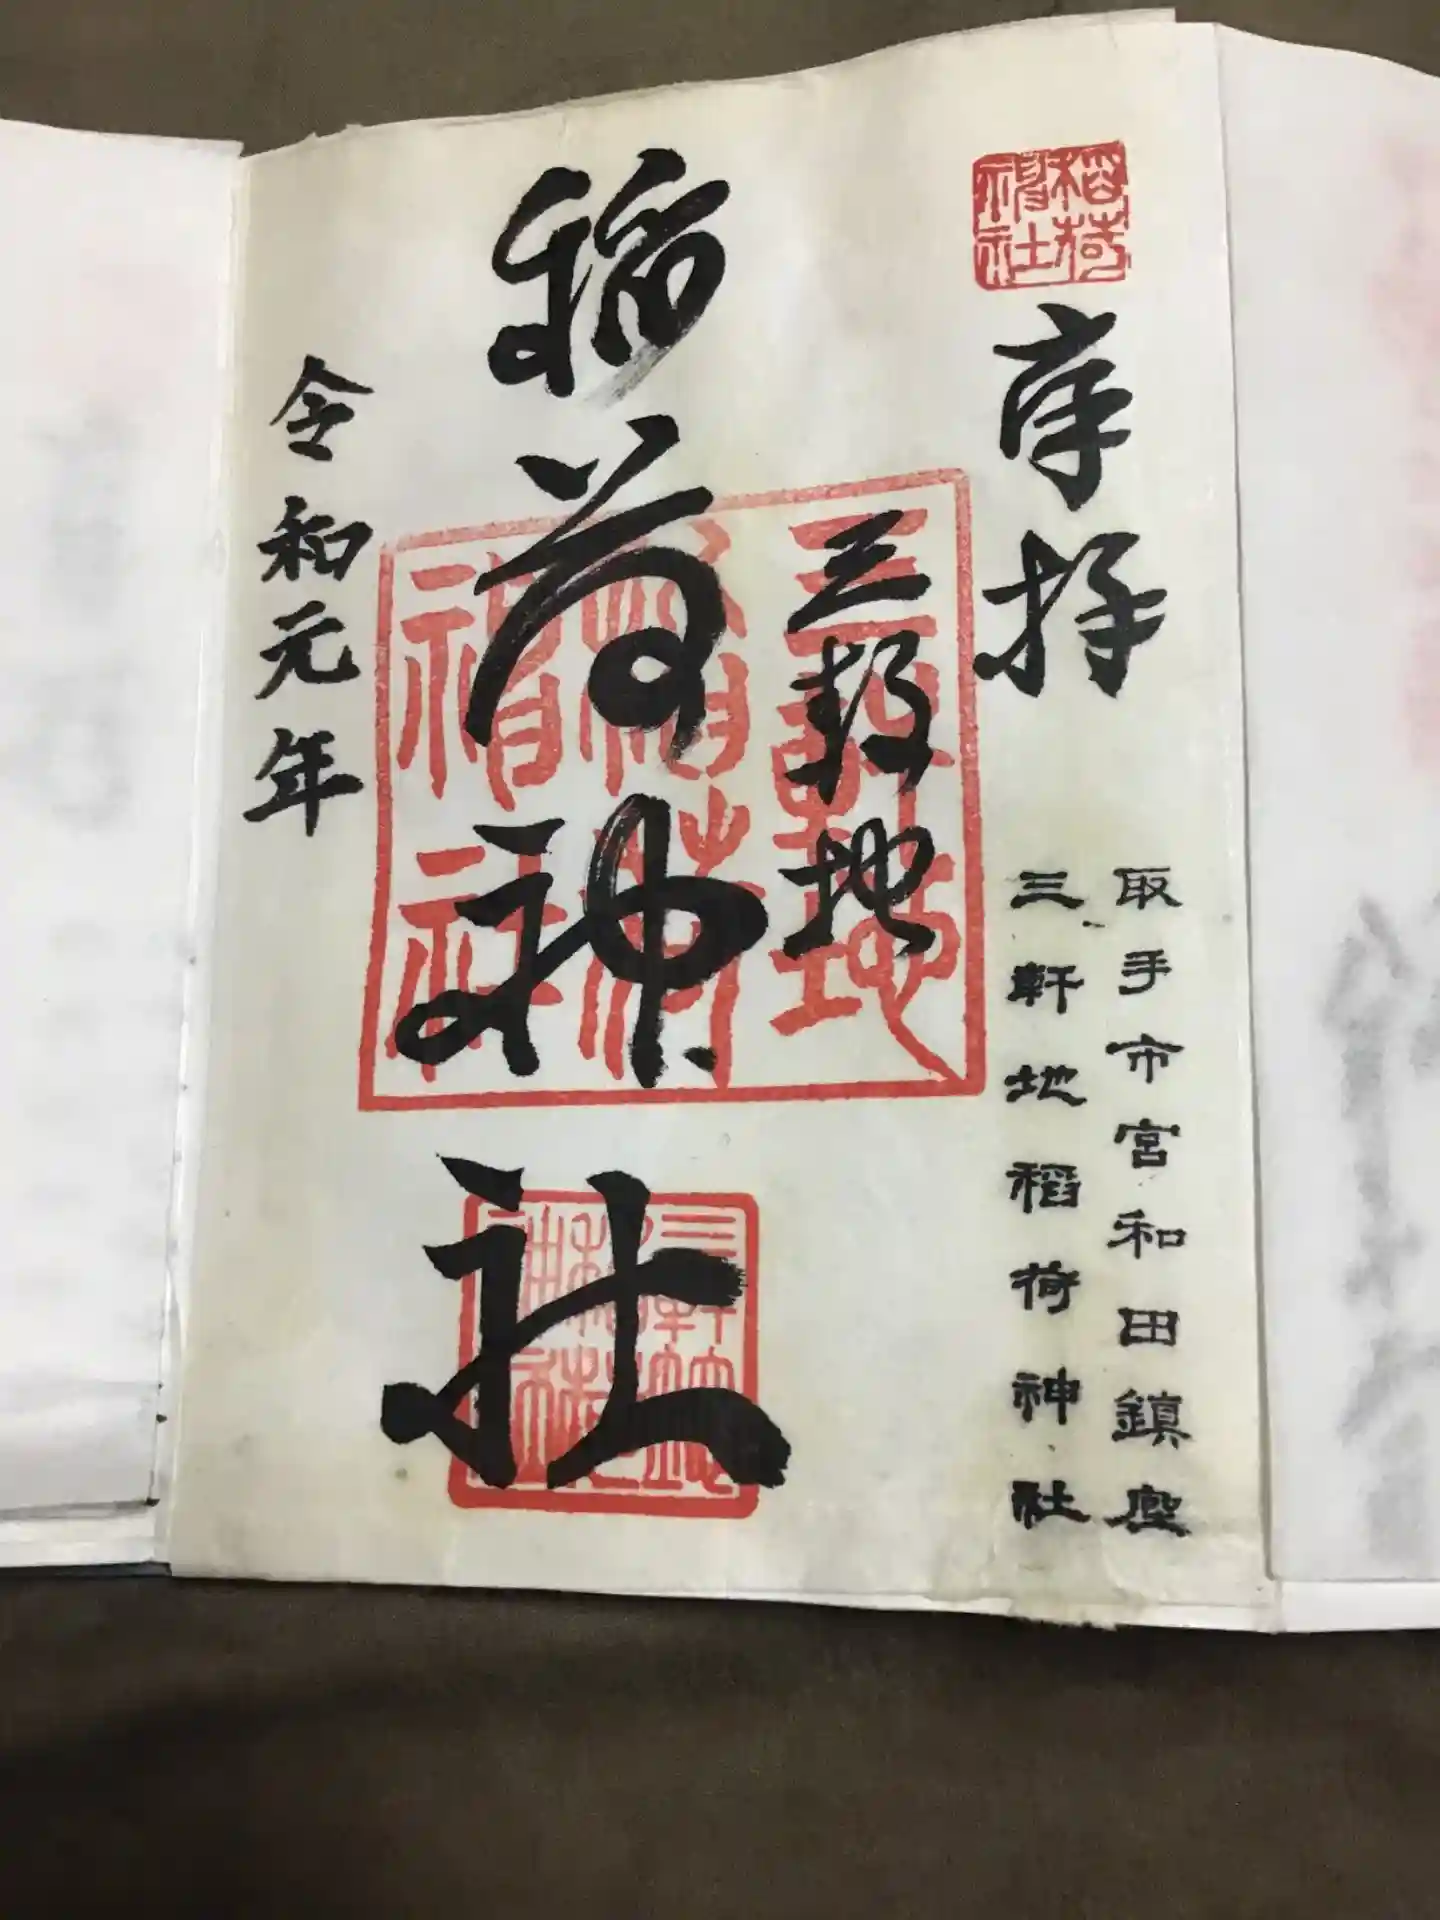 稲荷神社
奉拝
取手市宮和田鎮座
三軒地稲荷神社
三軒地
稲荷神社
令和元年
三軒地
稲荷
神社